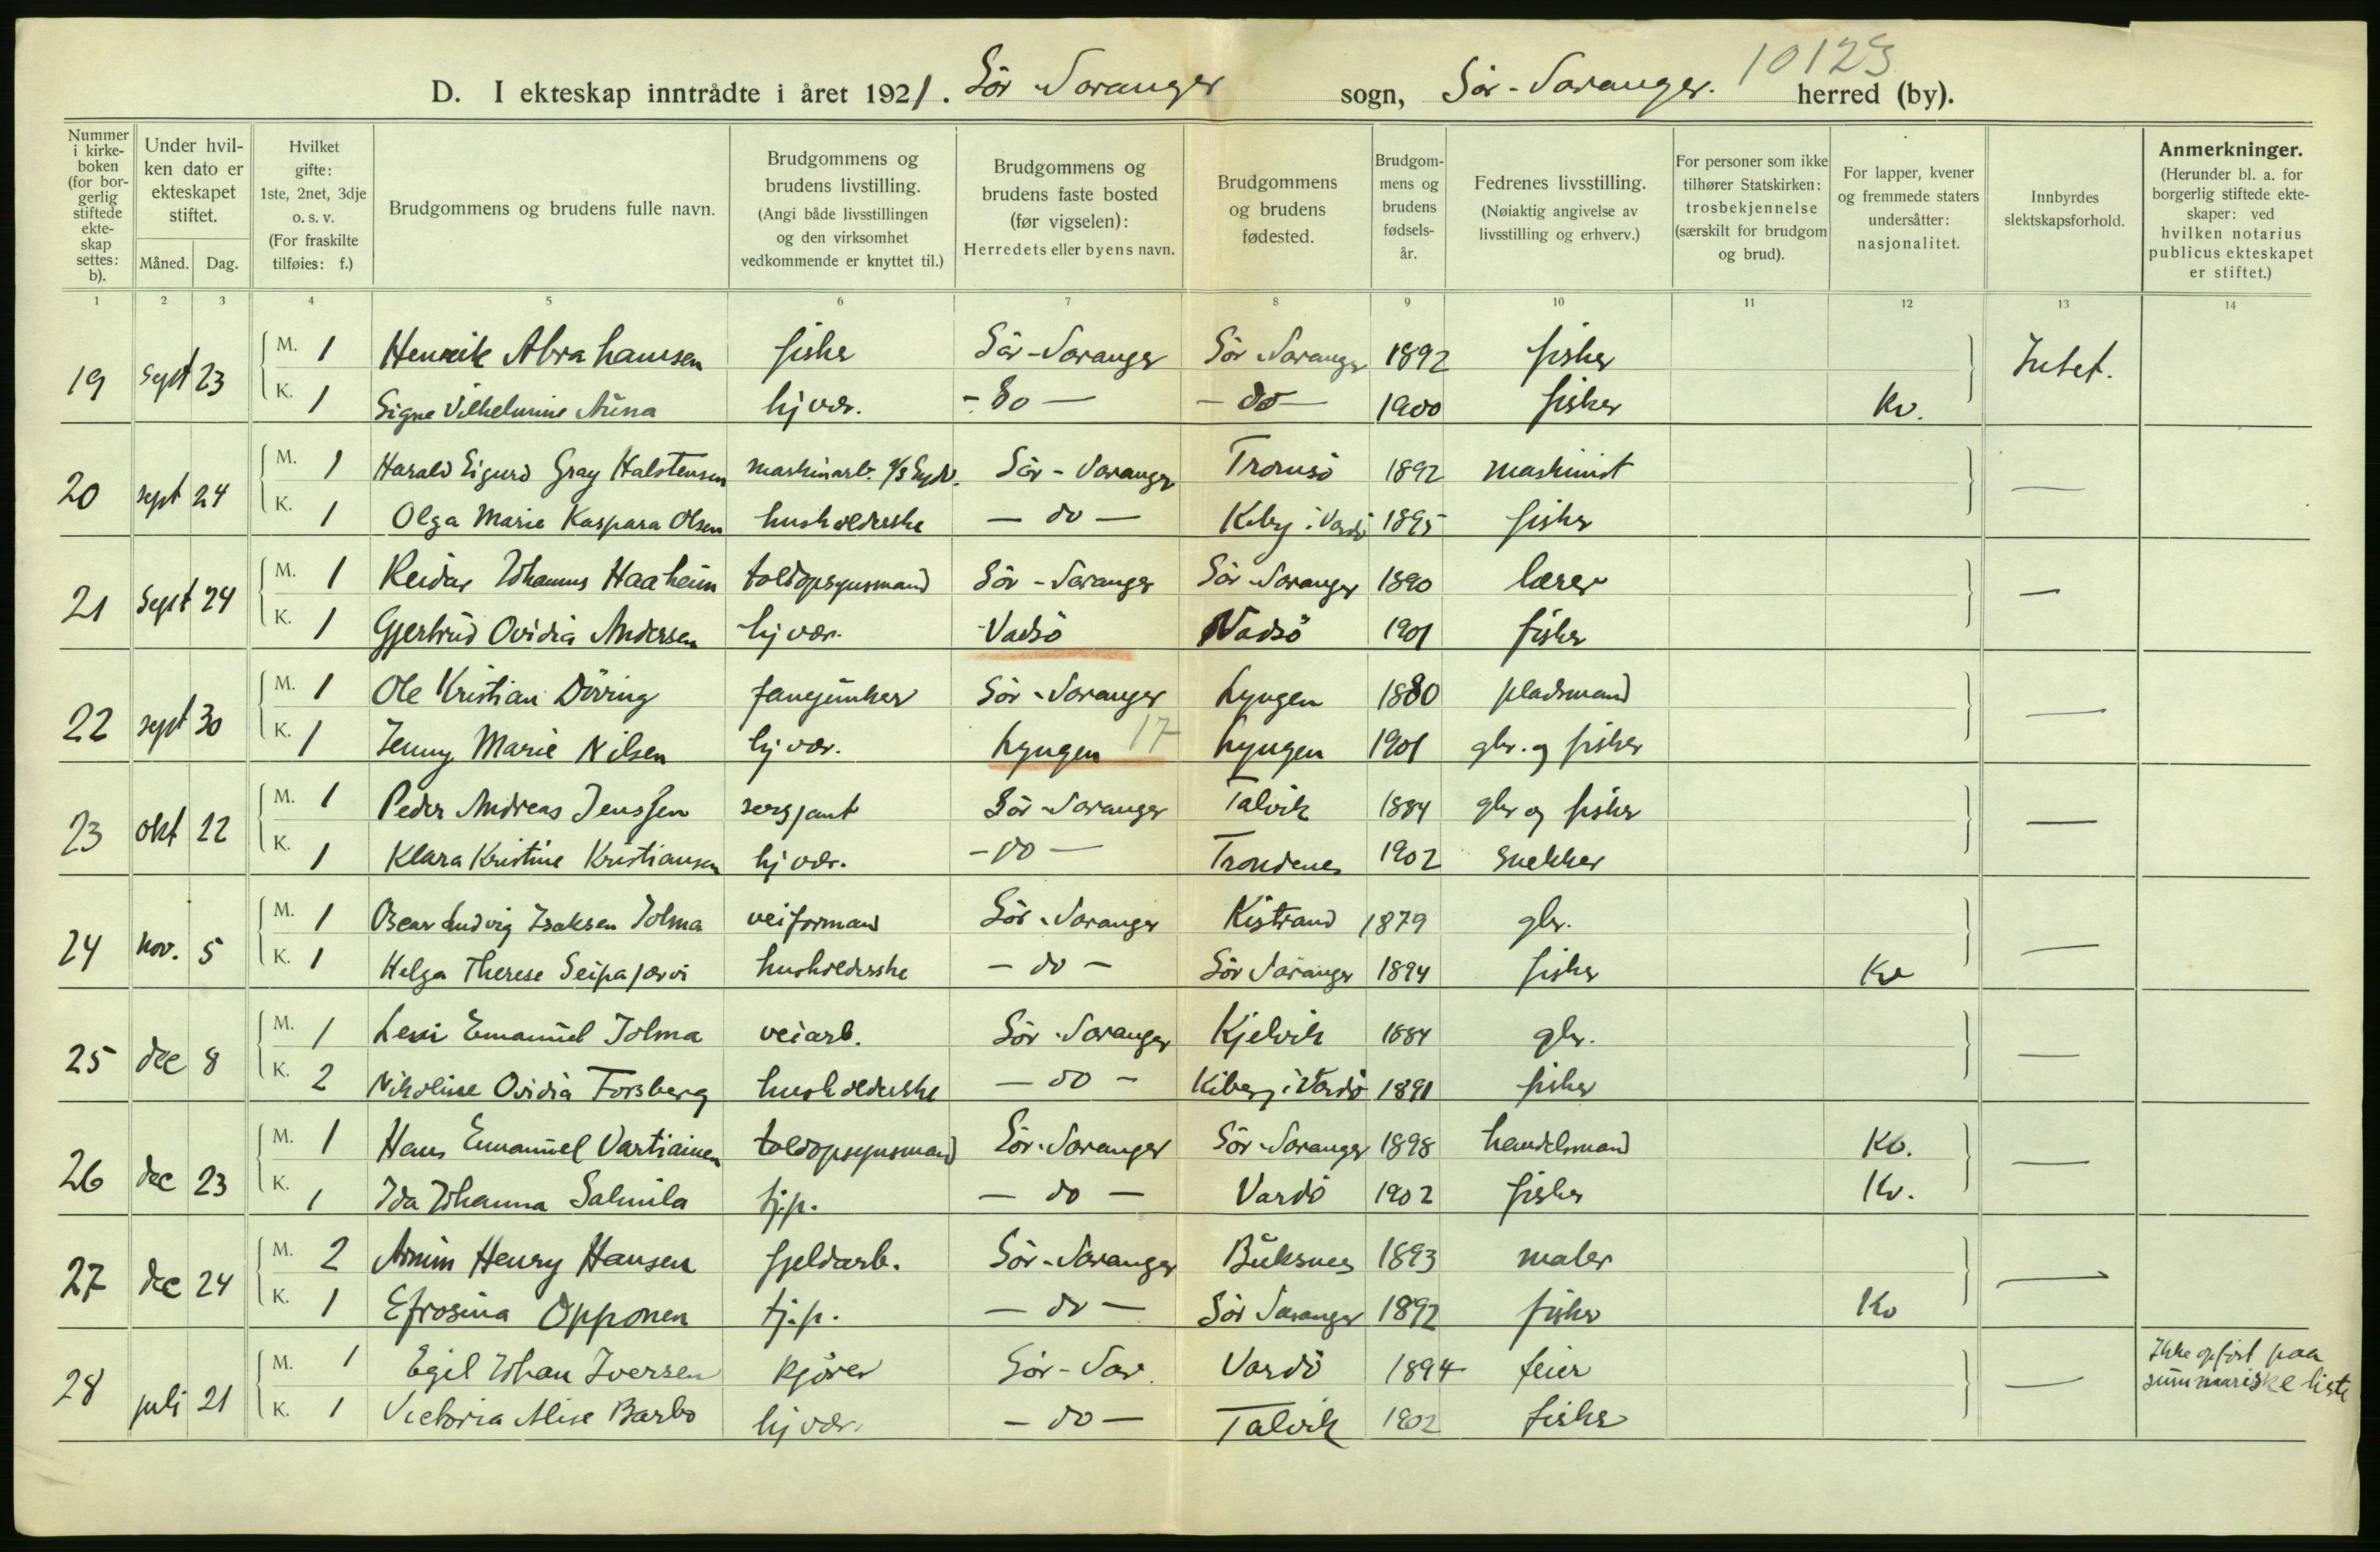 10123
D. I ekteskap inntrådte i året 1921. Sör-Varanger sogn, Sör-Varanger. herred (by).
Nummer i kirkeboken (for borgerlig stiftede ekteskap settes: b).
Under hvilken dato er ekteskapet stiftet.
Måned. Dag.
Hvilket gifte: 1ste, 2net, 3dje o. s. v. (For fraskilte tilføies: f.)
Brudgommens og brudens fulle navn.
Brudgommens og brudens livstilling. (Angi både livsstillingen og den virksomhet vedkommende er knyttet til.)
Brudgommens og brudens faste bosted (før vigselen): Herredets eller byens navn.
Brudgommens og brudens fødested.
Brudgommens og brudens fødselsår.
Fedrenes livsstilling. (Nøiaktig angivelse av livsstilling og erhverv.)
For personer som ikke tilhører Statskirken: trosbekjennelse (særskilt for brudgom og brud).
For lapper, kvener og fremmede staters undersåtter: nasjonalitet.
Innbyrdes slektskapsforhold.
Anmerkninger. (Herunder bl. a. for borgerlig stiftede ekteskaper: ved hvilken notarius publicus ekteskapet er stiftet.)
1 2 3 4 5 6 7 8 9 10 11 12 13 14
19 Sept 23 M. 1 Henrik Abrahamsen fisker Sör-Varanger Sör Varanger 1892 fisker Intet.
K. 1 Signe Vilhelmine hj vær. - do - - do - 1900 fisker Kv.
20 sept 24 M. 1 Harald Sigurd Gray Halstensen maskinarb. Sör-Varanger Tromsö 1892 maskinist —
K. 1 Olga Marie Kaspara Olsen husholderske - do - i Vardö 1895 fisker
21 Sept 24 M. 1 Reidar Johannes Haaheim toldopsynsmand Sör-Varanger Sör-Varanger 1890 lærer —
K. 1 Gjertrud Ovidia Andersen hj vær. Vadsö Vadsö 1901 fisker
22 sept 30 M. 1 Ole Kristian Döring fanejunker Sör-Varanger Lyngen 1880 pladsmand —
K. 1 Jenny Marie Nilsen hj vær. Lyngen 17 Lyngen 1901 gbr. og fisker
23 okt 22 M. 1 Peder Andreas Jenssen sersjant Sör-Varanger Talvik 1884 gbr og fisker —
K. 1 Klara Kristine Kristiansen hj vær. - do - Trondenes 1902 snekker
24 nov. 5 M. 1 Oscar Ludvig Isaksen Jolma veiformand Sör-Varanger Kistrand 1879 gbr. —
K. 1 Helga Therese Seipajærvi husholderske - do - Sör Varanger 1894 fisker Kv
25 dec 8 M. 1 Levi Emanuel Jolma veiarb. Sör-Varanger Kjelvik 1884 gbr. —
K. 2 Nikoline Ovidia Forsberg husholderske - do - Kiberg i Vardö 1891 fisker
26 dec 23 M. 1 Hans Emanuel Vartiainen toldopsynsmand Sör-Varanger Sör-Varanger 1898 handelsmand Kv. —
K. 1 Ida Johanna Salmila tj.p. - do - Vardö 1902 fisker Kv.
27 dec 24 M. 2 Armin Henry Hansen fjeldarb. Sör-Varanger Buksnes 1893 maler —
K. 1 Efrosina Opponen tj.p. - do - Sör Varanger 1892 fisker Kv
28 juli 21 M. 1 Egil Johan Iversen kjörer Sör-Var. Vardö 1894 feier — Ikke opfört paa
summariske liste
K. 1 Victoria Alise Barbo hj vær. - do - Talvik 1902 fisker